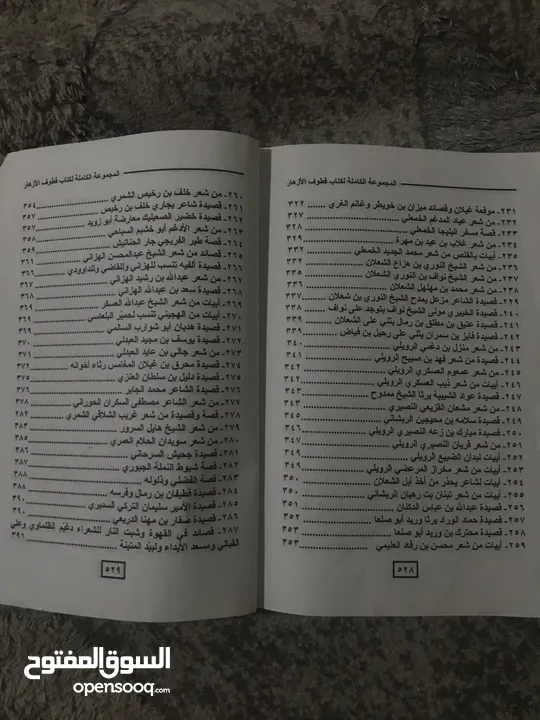 المجموعة الكاملة لكتاب قطوف الأزهار
٢٣١- موقعة غيلان وقصائد ميزان بن خويطر وغانم الغري ٣٢٢
٢٣٢- من شعر عياد المدغم الخمعلي
٢٣٣- قصة مسفر البليخا الخمعلي
٢٣٤- من شعر غلاب بن عيد بن مهرة
٢٣٥- أبيات بالقنص من شعر محمد الجديد الخمعلي ٣٣٢
من شعر الشيخ النوري بن هزاع الشعلان ٣٣٢
من شعر الشيخ نواف بن النوري الشعلان
من شعر محمد بن مهلهل الشعلان
قصيدة الشاعر مزعل يمدح الشيخ النوري بن شعلان ٣٣٧
قصيدة الخبيري مولى الشيخ نواف يتوجد على نواف ٣٣٨
قصيدة عتيق بن مطلق بن رمال يثني على الشعلان
قصيدة فايز بن سمران يثني على رحيل بن فياض ٣٣٩
من شعر منزل بن دغمي الرويلي ٣٤٠
من شعر فهد بن صبيح الرويلي
من شعر عمعوم العسكري الرويلي
أبيات من شعر ذيب العسكري الرويلي
قصيدة عواد الشبيبة يرثا الشيخ ممدوح ٣٤٣
٢٤٨- من شعر مشعان القزيعي النصيري
قصيدة سلامه بن محيجين الريشاني ٣٤٥
قصيدة مبارك بن زعه النصيري الرويلي
من شعر قريان النصيري الرويلي
أبيات لبدان الضبيع الرويلي
أبيات من شعر مخرال المرعضي الرويلي ٣٤٩
أبيات لشاعر يحذر من أخذ أبل الشعلان
أبيات من شعر ثنيان بت رهيان الريشاني
قصيدة عبدالله بن عباس الدكنان
٢٥٧- قصيدة حماد الوراد يرثا وريد أبو صلعا ٣٥٢
٢٥٨- قصيدة محترك بن وريد أبو صلعا ٣٥٣
٢٥٩- أبيات من شعر محسن بن رفاد العليمي ٣٥٣
٥٢٨
المجموعة الكاملة لكتاب قطوف الأزهار
٢٦٠- من شعر خلف بن رخيص الشمري ٣٥٤
٢٦١- قصيدة شاعر يجاري خلف بن رخيص ٣٥٧
٢٦٢- قصيدة خضير الصعيليك معارضة أبو زويد ٣٥٧
٢٦٣- من شعر الأدغم أبو خشيم السباحي ٣٥٨
٢٦٤- قصة طير الفريجي جار الحناتيش ٣٥٩
٢٦٥- قصائد من شعر الشيخ عبدالمحسن الهزاني ٣٦١
٢٦٦- قصيدة ألفيه تنسب للهزاني وللقاضي وللداوودي ٣٦٦
٢٦٧- من شعر عبدالله بن رشيد الهزاني ٣٦٧
٢٦٨- قصيدة سعد بن عبدالله الهزاني ٣٦٨
٢٦٩- أبيات من شعر الشيخ عبدالله العسكر
٢٧٠- أبيات من الهجيني تنسب لحمير البلعاسي ٣٦٩
٢٧١- قصيدة هديان أبو شوارب السالمي
٢٧٢- قصيدة يوسف بن مجيد العبدلي
٢٧٣- من شعر جالي بن عايد العبدلي
٢٧٤- قصيدة محرق بن غيلان المقامس رثاء أخوانه ٣٧٤
٢٧٥- قصيدة دليل بن سلطان العنزي ٣٧٥
٢٧٦- قصيدة الشاعر محمد الجابر ٣٧٦
قصيدة الشاعر مصطفى السكران الحوراني
قصة وقصيدة من شعر غريب الشلاقي الشمري ٣٨٢
من شعر الشيخ هايل السرور ٣٨٣
من شعر سويدان الحلام العمري ٣٨٤
قصيدة جحيش السرحاني ٣٨٥
قصة شيوط النملة الجبوري
قصة الفضلي وذلوله
٢٨٤- قصيدة قطيفان بن رمال وفرسه
٢٨٥- قصيدة الأمير سليمان التركي السديري ٣٩٠
٢٨٦- قصيدة صقار بن مهنا الدريعي ٣٩٠
٢٨٧- قصائد في القهوة وشبت النار للشعراء دغيم الظلماوي وعلي
القبالي ومسعد الأيداء ولبيد المتينة ٣٩١
٥٢٩
السوق المفتوح
opensooq.com